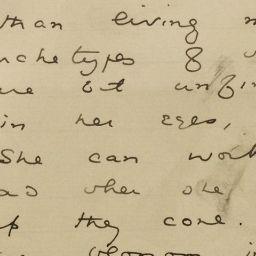 than living
archetypes &
but unfin
in her eyes,
She can work
as when she
up they come.